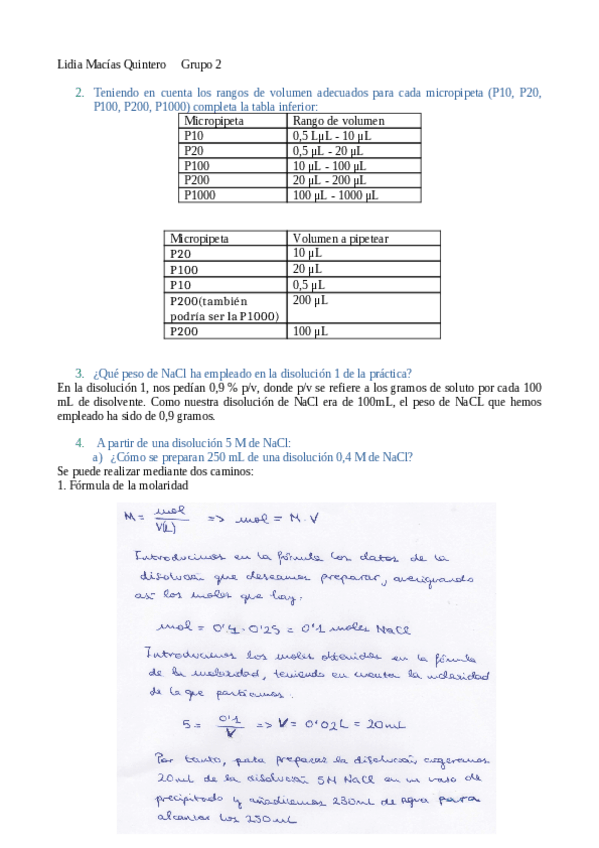 Lidia Macías Quintero Grupo 2
2. Teniendo en cuenta los rangos de volumen adecuados para cada micropipeta (P10, P20,
P100, P200, P1000) completa la tabla inferior:
Micropipeta Rango de volumen
P10 0,5 LµL - 10 µL
P20 0,5 µL - 20 µL
P100 10 µL - 100 µL
P200 20 µL - 200 µL
P1000 100 µL - 1000 µL
Micropipeta Volumen a pipetear
P20 10 µL
P100 20 µL
P10 0,5 µL
P200(también 200 µL
podría ser la P1000)
P200 100 µL
3. ¿Qué peso de NaCl ha empleado en la disolución 1 de la práctica?
En la disolución 1, nos pedían 0,9 % p/v, donde p/v se refiere a los gramos de soluto por cada 100
mL de disolvente. Como nuestra disolución de NaCl era de 100mL, el peso de NaCL que hemos
empleado ha sido de 0,9 gramos.
4. A partir de una disolución 5 M de NaCl:
a) ¿Cómo se preparan 250 mL de una disolución 0,4 M de NaCl?
Se puede realizar mediante dos caminos:
1. Fórmula de la molaridad
M = mol / V(L) => mol = M · V
Introducimos en la fórmula los datos de la
disolución que deseamos preparar, averiguando
así los moles que hay.
mol = 0'4 · 0'25 = 0'1 moles NaCl
Introducimos los moles obtenidos en la fórmula
de la molaridad, teniendo en cuenta la molaridad
de la que partimos.
5 = 0'1 / V => V = 0'02L = 20mL
Por tanto, para preparar la disolución, cogeremos
20ml de la disolución 5M NaCl en un vaso de
precipitado y añadiremos 230ml de agua para
alcanzar los 250mL